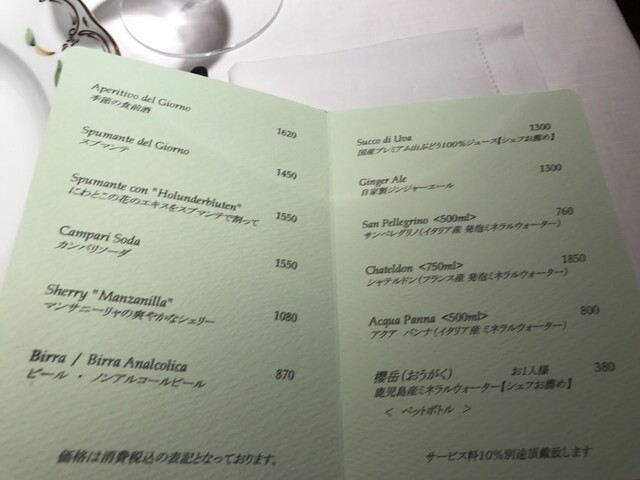 Aperitivo del Giorno
季節の食前酒 1620
Spumante del Giorno
スプマンテ 1450
Spumante con "Holunderbluten"
にわとこの花のエキスをスプマンテで割って 1550
Campari Soda
カンパリソーダ 1550
Sherry "Manzanilla"
マンサニーリャの爽やかなシェリー 1080
Birra / Birra Analcolica
ビール ・ ノンアルコールビール 870
価格は消費税込の表記となっております。
Succo di Uva 1300
国産プレミアム山ぶどう100%ジュース【シェフお薦め】
Ginger Ale 1300
自家製ジンジャーエール
San Pellegrino <500ml> 760
サンペレグリノ(イタリア産 発泡ミネラルウォーター)
Chateldon <750ml> 1850
シャテルドン(フランス産 発泡ミネラルウォーター)
Acqua Panna <500ml> 800
アクア パンナ(イタリア産 ミネラルウォーター)
櫻岳(おうがく) お1人様 380
鹿児島産ミネラルウォーター【シェフお薦め】
< ペットボトル >
サービス料10%別途頂戴致します